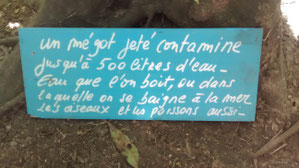 un mégot jeté contamine
jusqu'à 500 litres d'eau_
Eau que l'on boit, ou dans
laquelle on se baigne à la mer
Les oiseaux et les poissons aussi_